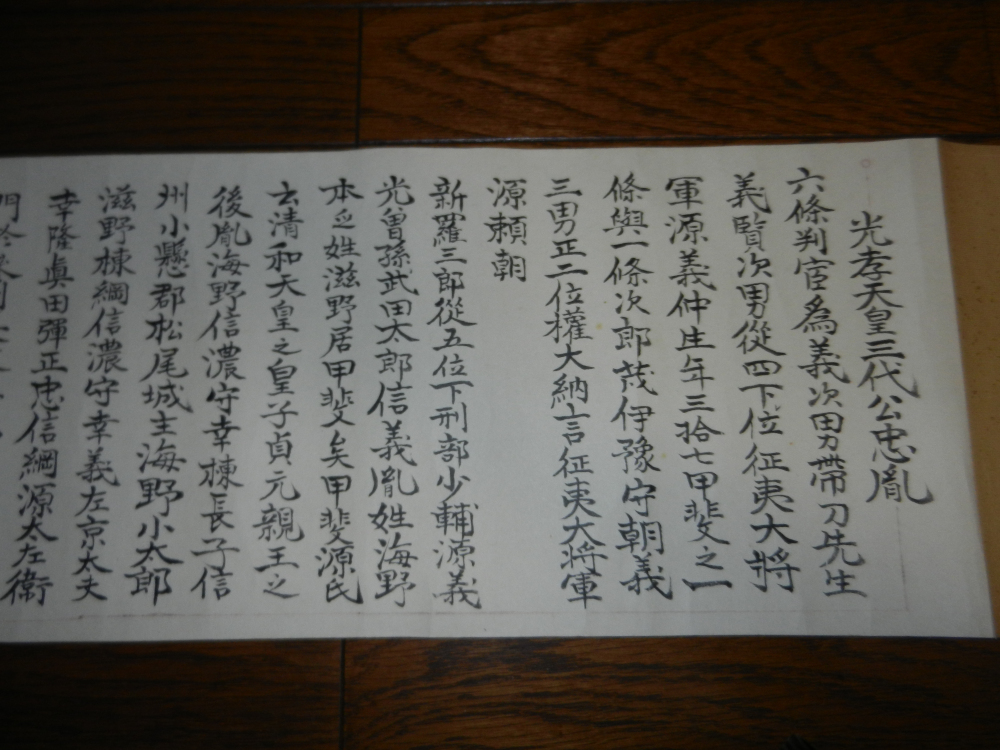 光孝天皇三代公忠胤
六條判官為義次男帶刀先生
義賢次男從四下位征夷大將
軍源義仲生年三拾七甲斐之一
條與一條次郎茂伊豫守朝義
三男正二位權大納言征夷大将軍
源頼朝
新羅三郎從五位下刑部少輔源義
光曽孫武田太郎信義胤姓海野
本之姓滋野居甲斐矣甲斐源氏
去清和天皇之皇子貞元親王之
後胤海野信濃守幸棟長子信
州小懸郡松尾城主海野小太郎
滋野棟綱信濃守幸義左京太夫
幸隆眞田彈正忠信綱源太左衛
門